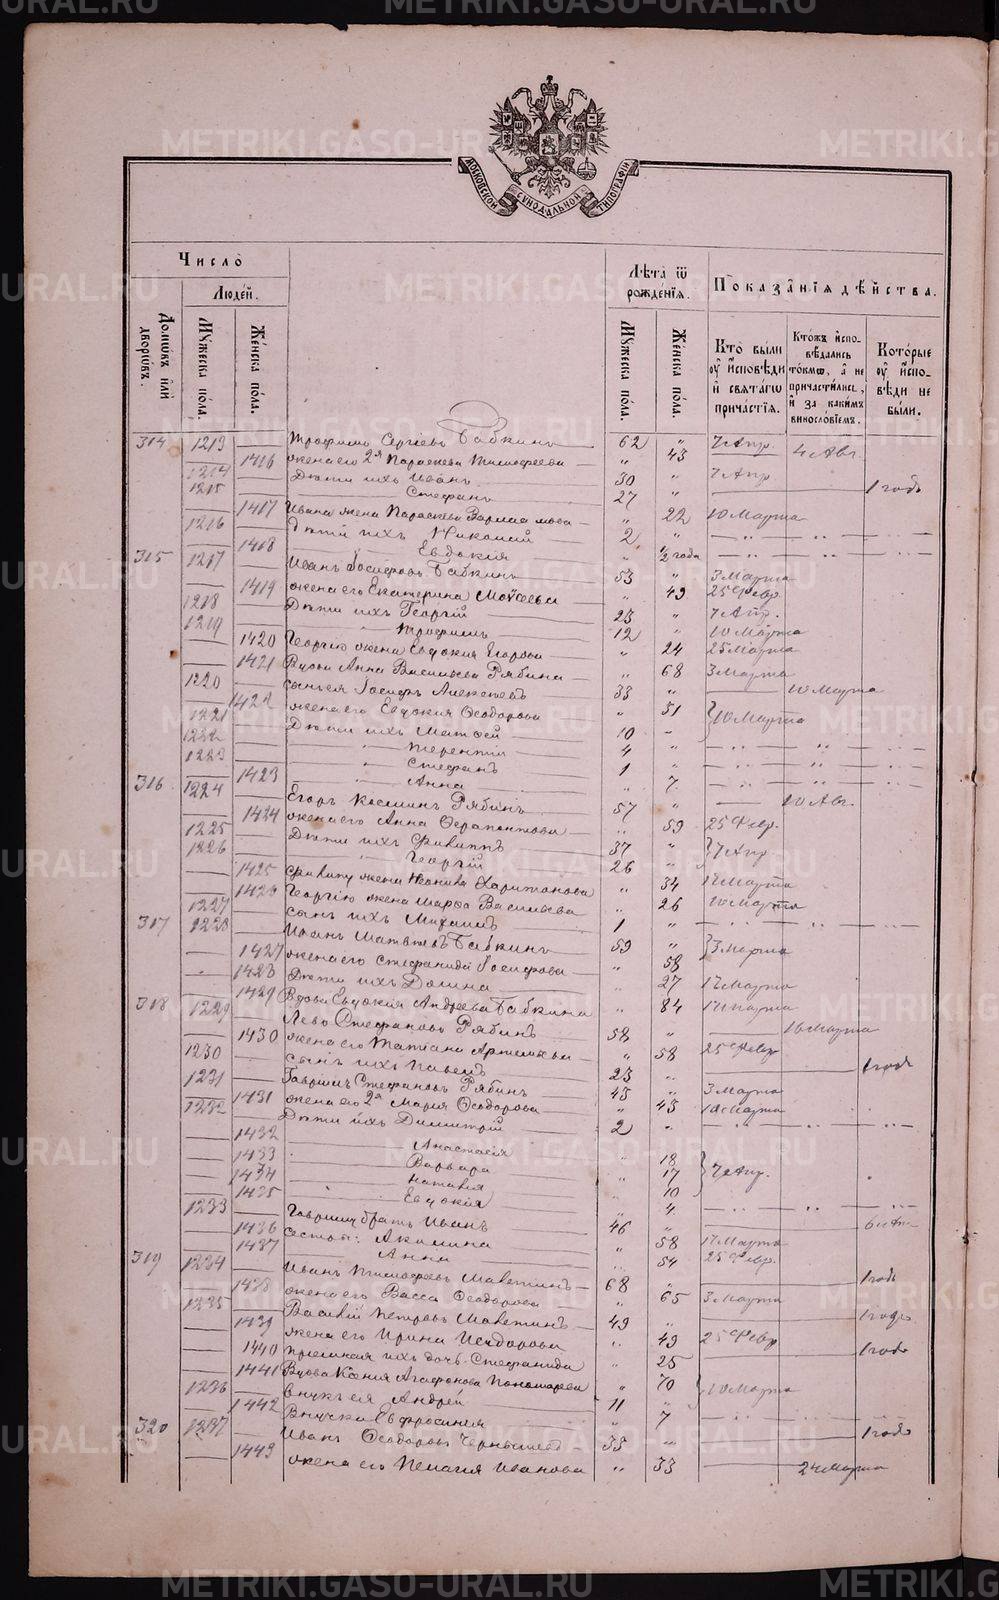 МОСКОВСКОЙ СѴНОДАЛЬНОЙ ТИПОГРАФІИ
Число
Людей.
Домωвъ или дворωвъ.
Мꙋжеска пола.
Женска пола.
Лѣта ѿ рожденїѧ.
Мꙋжеска пола.
Женска пола.
Показанїѧ дѣйства.
Кто были оу исповѣди и свѧтагω причастїѧ.
Ктожъ исповѣдались токмω, а не причастились, и за какимъ винословїемъ.
Которые оу исповѣди не были.
314 1213 Трофимъ Сергіевъ Бабкинъ 62 " 7 Апр.
1416 жена его 2я Параскева Тимофеева " 43 4 Авг.
1214 Дѣти ихъ Иванъ 30 " 7 Апр
1215 Стефанъ 27 " 1 годъ
1417 Ивана жена Параскева " 22 10 Марта
1216 Дѣти ихъ Николай 2 "
1418 Евдокия " 1/2 года
315 1217 Иванъ Іосифовъ Бабкинъ 53 " 3 Марта
1419 жена его Екатерина Моѵсеева " 49 25 Февр
1218 Дѣти ихъ Георгій 23 " 7 Апр.
1219 " Трофимъ 12 " 10 Марта
1420 Георгію жена Евдокия Егорова " 24 25 Марта
1421 Вдова Анна Васильева Рябина " 68 3 Марта
1220 сынъ ея Іосифъ Алексеевъ 33 " 10 Марта
1422 жена его Евдокия Ѳеодорова " 51 10 Марта
1221 Дѣти ихъ Матѳей 10 -
1222 " Терентій 4 "
1223 " Стефанъ 1 "
1423 " Анна " 7
316 1224 Егоръ Косминъ Рябинъ 57 " 10 Авг.
1424 жена его Анна Ферапонтова " 59 25 Февр.
1225 Дѣти ихъ Филиппъ 37 " 7 Апр.
1226 " Георгій 26 "
1425 Филиппу жена Харитонова " 34 17 Марта
1426 Георгію жена Марѳа Васильева " 26 10 Марта
1227 сынъ ихъ Михаилъ 1 "
317 1228 Иванъ Матвѣевъ Бабкинъ 59 " 3 Марта
1427 жена его Стефанида Іосифова " 58
1428 Дѣти ихъ Домна " 27 17 Марта
1429 Вдова Евдокия Андреева Бабкина " 84 17 марта
318 1229 Левъ Стефановъ Рябинъ 58 " 10 Марта
1430 жена его Татіана Артемьева " 58 25 Февр
1230 сынъ ихъ Павелъ 23 " 1 годъ
1231 Гавріилъ Стефановъ Рябинъ 45 " 3 Марта
1431 жена его 2я Мария Ѳеодорова " 43 10 Марта
1232 Дѣти ихъ Димитрій 2 "
1432 Анастасія " 18 7 Апр.
1433 Варвара " 17
1434 Наталия " 10
1435 " Евдокия " 4
1233 Гавріилу братъ Иванъ 46 "
1436 сестры: Акилина " 58 17 Марта
1437 Анна " 54 25 Февр.
319 1234 Иванъ Тимофеевъ 68 " 1 годъ
1438 жена его Васса Ѳеодорова " 65 3 Марта
1235 Василій Петровъ 49 " 1 годъ
1439 жена его Ирина " 49 25 Февр
1440 приемная ихъ дочь Стефанида " 25 1 годъ
1441 Вдова Ксения Агафонова Пономарева " 70 10 Марта
1236 внукъ ея Андрей 11 "
1442 Внучка Евфросиния " 7
320 1237 Иванъ Ѳеодоровъ Чернышевъ 35 " 1 годъ
1443 жена его Пелагия Иванова " 33 24 Марта
METRIKI.GASO-URAL.RU